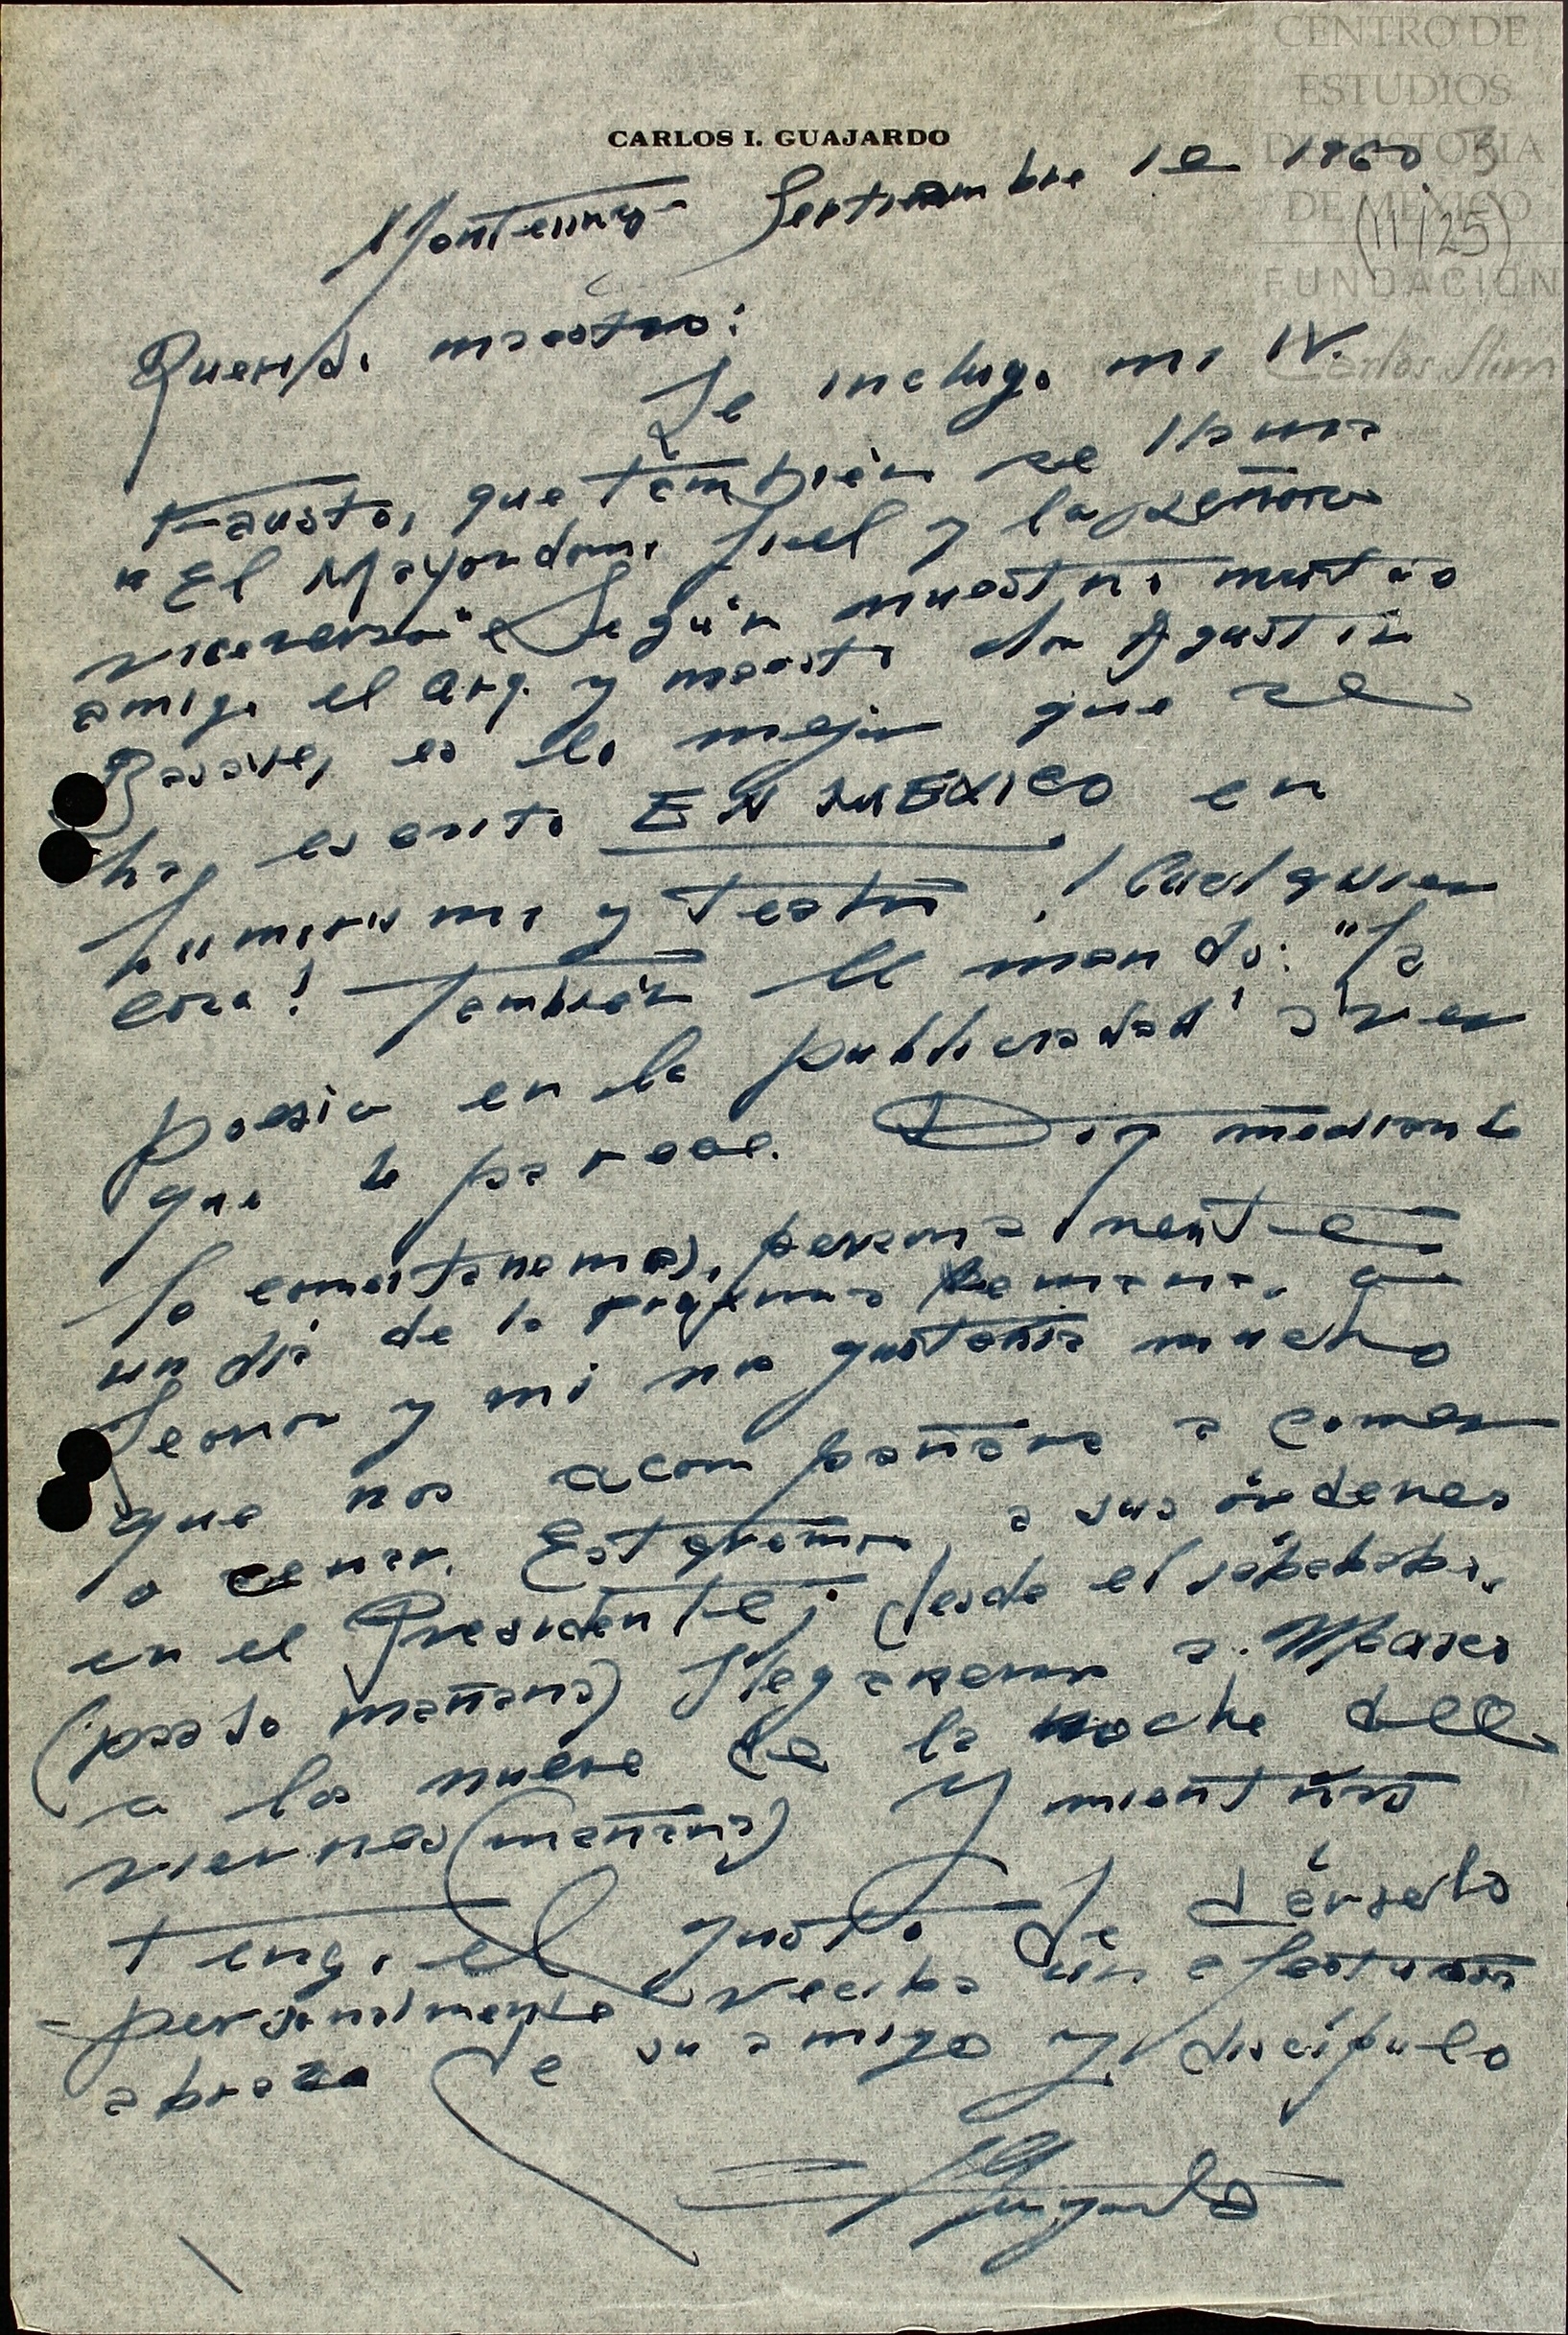 CENTRO DE
ESTUDIOS
DE HISTORIA
DE MEXICO
FUNDACION
Carlos Slim
CARLOS I. GUAJARDO
3
(11/25)
Monterrey Septiembre 1o 1960
Querido maestro:
Le incluyo mi IV.
Fausto, que también se llama
"El Mayordomo fiel y la señora
viceversa" Según nuestro mutuo
amigo el arq. y maestro don Agustín
Basave, es lo mejor que se
ha escrito EN MEXICO en
humorismo y teatro ¡Cualquier
cosa! También le mando: "La
poesía en la publicidad" a ver
que le parece. Dios mediante
lo comentaremos, personalmente
un día de la próxima semana, a
Leonor y mi nos gustaría mucho
que nos acompañara a comer
o cenar. Estaremos a sus órdenes
en el Presidente; desde el sábado
(pasado mañana) Llegaremos a México
a las nueve de la noche del
viernes (mañana) Y mientras
tengo el gusto de dárselo
personalmente reciba un afectuoso
abrazo de su amigo y discípulo
Guajardo